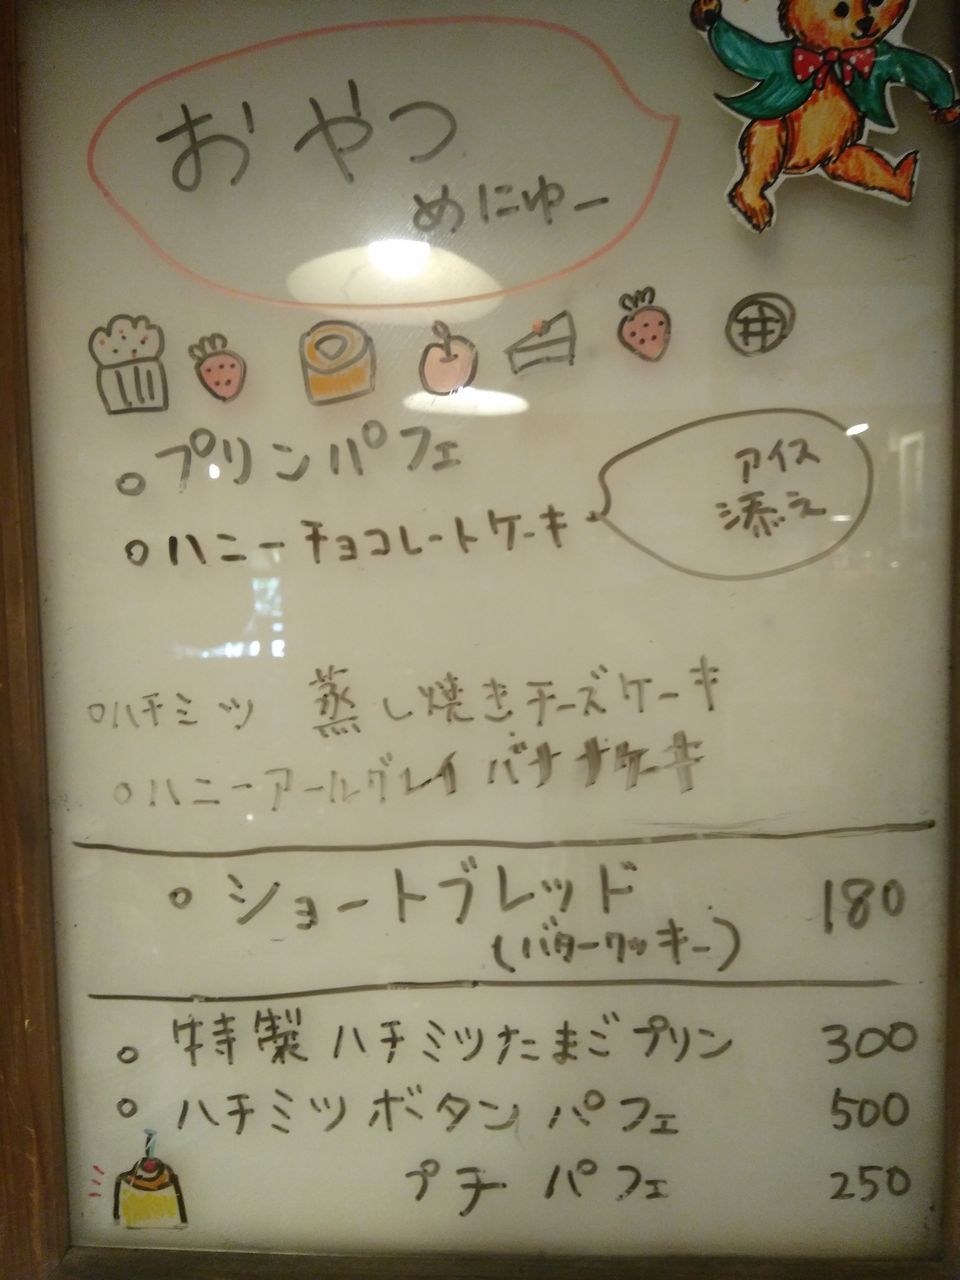 おやつ
めにゅー
プリンパフェ
ハニーチョコレートケーキ
アイス
添え
ハチミツ 蒸し焼きチーズケーキ
ハニーアールグレイ バナナケーキ
ショートブレッド 180
(バタークッキー)
特製 ハチミツたまごプリン 300
ハチミツ ボタン パフェ 500
プチ パフェ 250